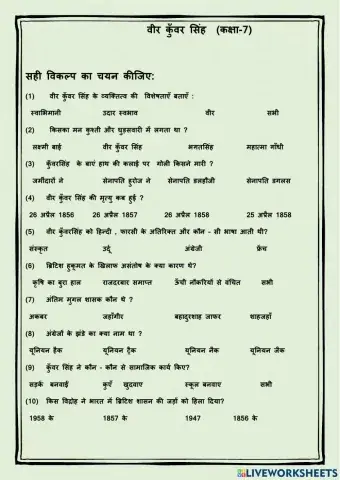 वीर कुँवर सिंह (कक्षा-7)
सही विकल्प का चयन कीजिए:
(1) वीर कुँवर सिंह के व्यक्तित्व की विशेषताएँ बताएँ :
स्वाभिमानी उदार स्वभाव वीर सभी
(2) किसका मन कुश्ती और घुड़सवारी में लगता था ?
लक्ष्मी बाई वीर कुँवर सिंह भगतसिंह महात्मा गाँधी
(3) कुँवरसिंह के बाएं हाथ की कलाई पर गोली किसने मारी ?
जमींदारों ने सेनापति हुरोज ने सेनापति डलहौजी सेनापति डगलस
(4) वीर कुँवर सिंह की मृत्यु कब हुई ?
26 अप्रैल 1856 26 अप्रैल 1857 26 अप्रैल 1858 25 अप्रैल 1858
(5) वीर कुँवरसिंह को हिन्दी , फारसी के अतिरिक्त और कौन - सी भाषा आती थी?
संस्कृत उर्दू अंग्रेजी फ्रेंच
(6) ब्रिटिश हुकूमत के खिलाफ असंतोष के क्या कारण थे?
कृषि का बुरा हाल राजदरबार समाप्त ऊँची नौकरियों से वंचित सभी
(7) अंतिम मुगल शासक कौन थे ?
अकबर जहाँगीर बहादुरशाह जाफर शाहजहाँ
(8) अंग्रेजों के झंडे का क्या नाम था ?
यूनियन हैक यूनियन ट्रैक यूनियन नैक यूनियन जैक
(9) कुँवर सिंह ने कौन - कौन से सामाजिक कार्य किए?
सड़कें बनवाई कुएँ खुदवाए स्कूल बनवाए सभी
(10) किस विद्रोह ने भारत में ब्रिटिश शासन की जड़ों को हिला दिया?
1958 के 1857 के 1947 1856 के
LIVEWORKSHEETS